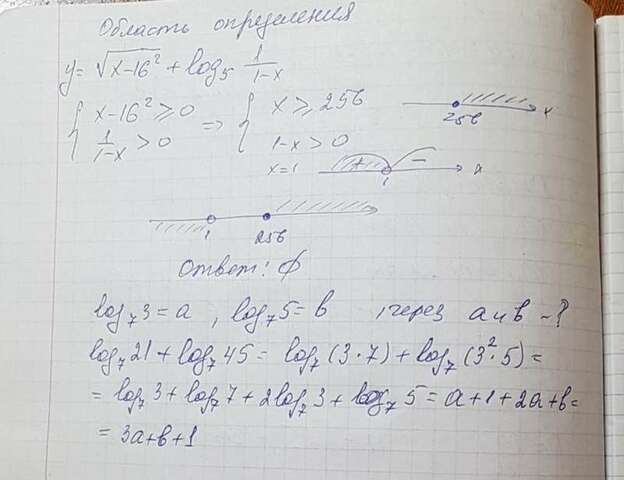 Область определения
y = √(x-16²) + log₅ 1/(1-x)
{ x-16² ⩾ 0 => { x ⩾ 256 256 x
1/(1-x) > 0 1-x > 0
x=1 + 1 - x
1 256
Ответ: ∅
log₇3 = a , log₇5 = b , через a и b - ?
log₇21 + log₇45 = log₇(3·7) + log₇(3²·5) =
= log₇3 + log₇7 + 2log₇3 + log₇5 = a+1+2a+b =
= 3a+b+1